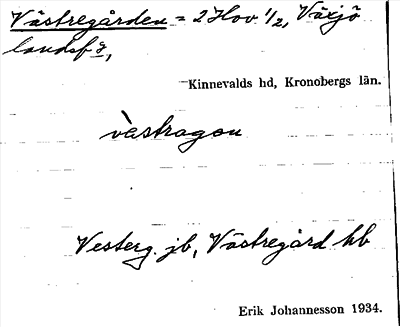 Västregården = 2 Hov 1/2, Växjö
landsf :g,
Kinnevalds hd, Kronobergs län.
vàstragon
Vesterg. jb, Västregård hb
Erik Johannesson 1934.